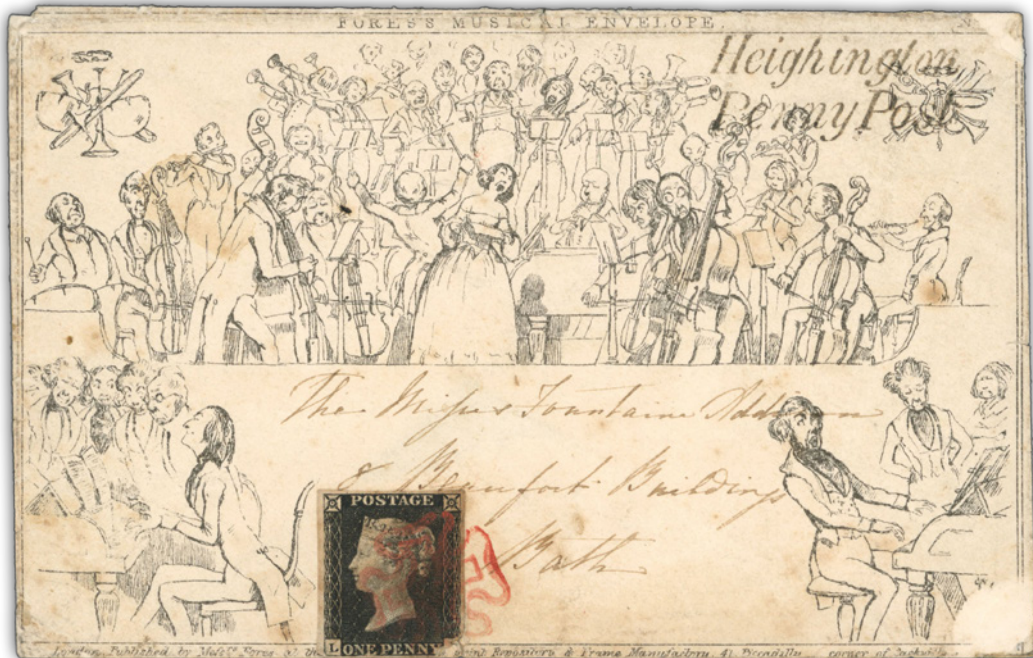 FORES'S MUSICAL ENVELOPE. No
Heighington
Penny Post
The Misses Fountaine Addison
8 Beaufort Buildings
Bath
POSTAGE
L ONE PENNY
London, Published by Messrs Fores at the Print Repository & Frame Manufactory, 41, Piccadilly corner of Sackville